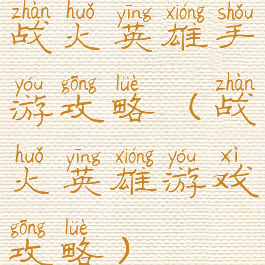 zhàn huǒ yīng xióng shǒu
战火英雄手
yóu gōng lüè zhàn
游攻略(战
huǒ yīng xióng yóu xì
火英雄游戏
gōng lüè
攻略)